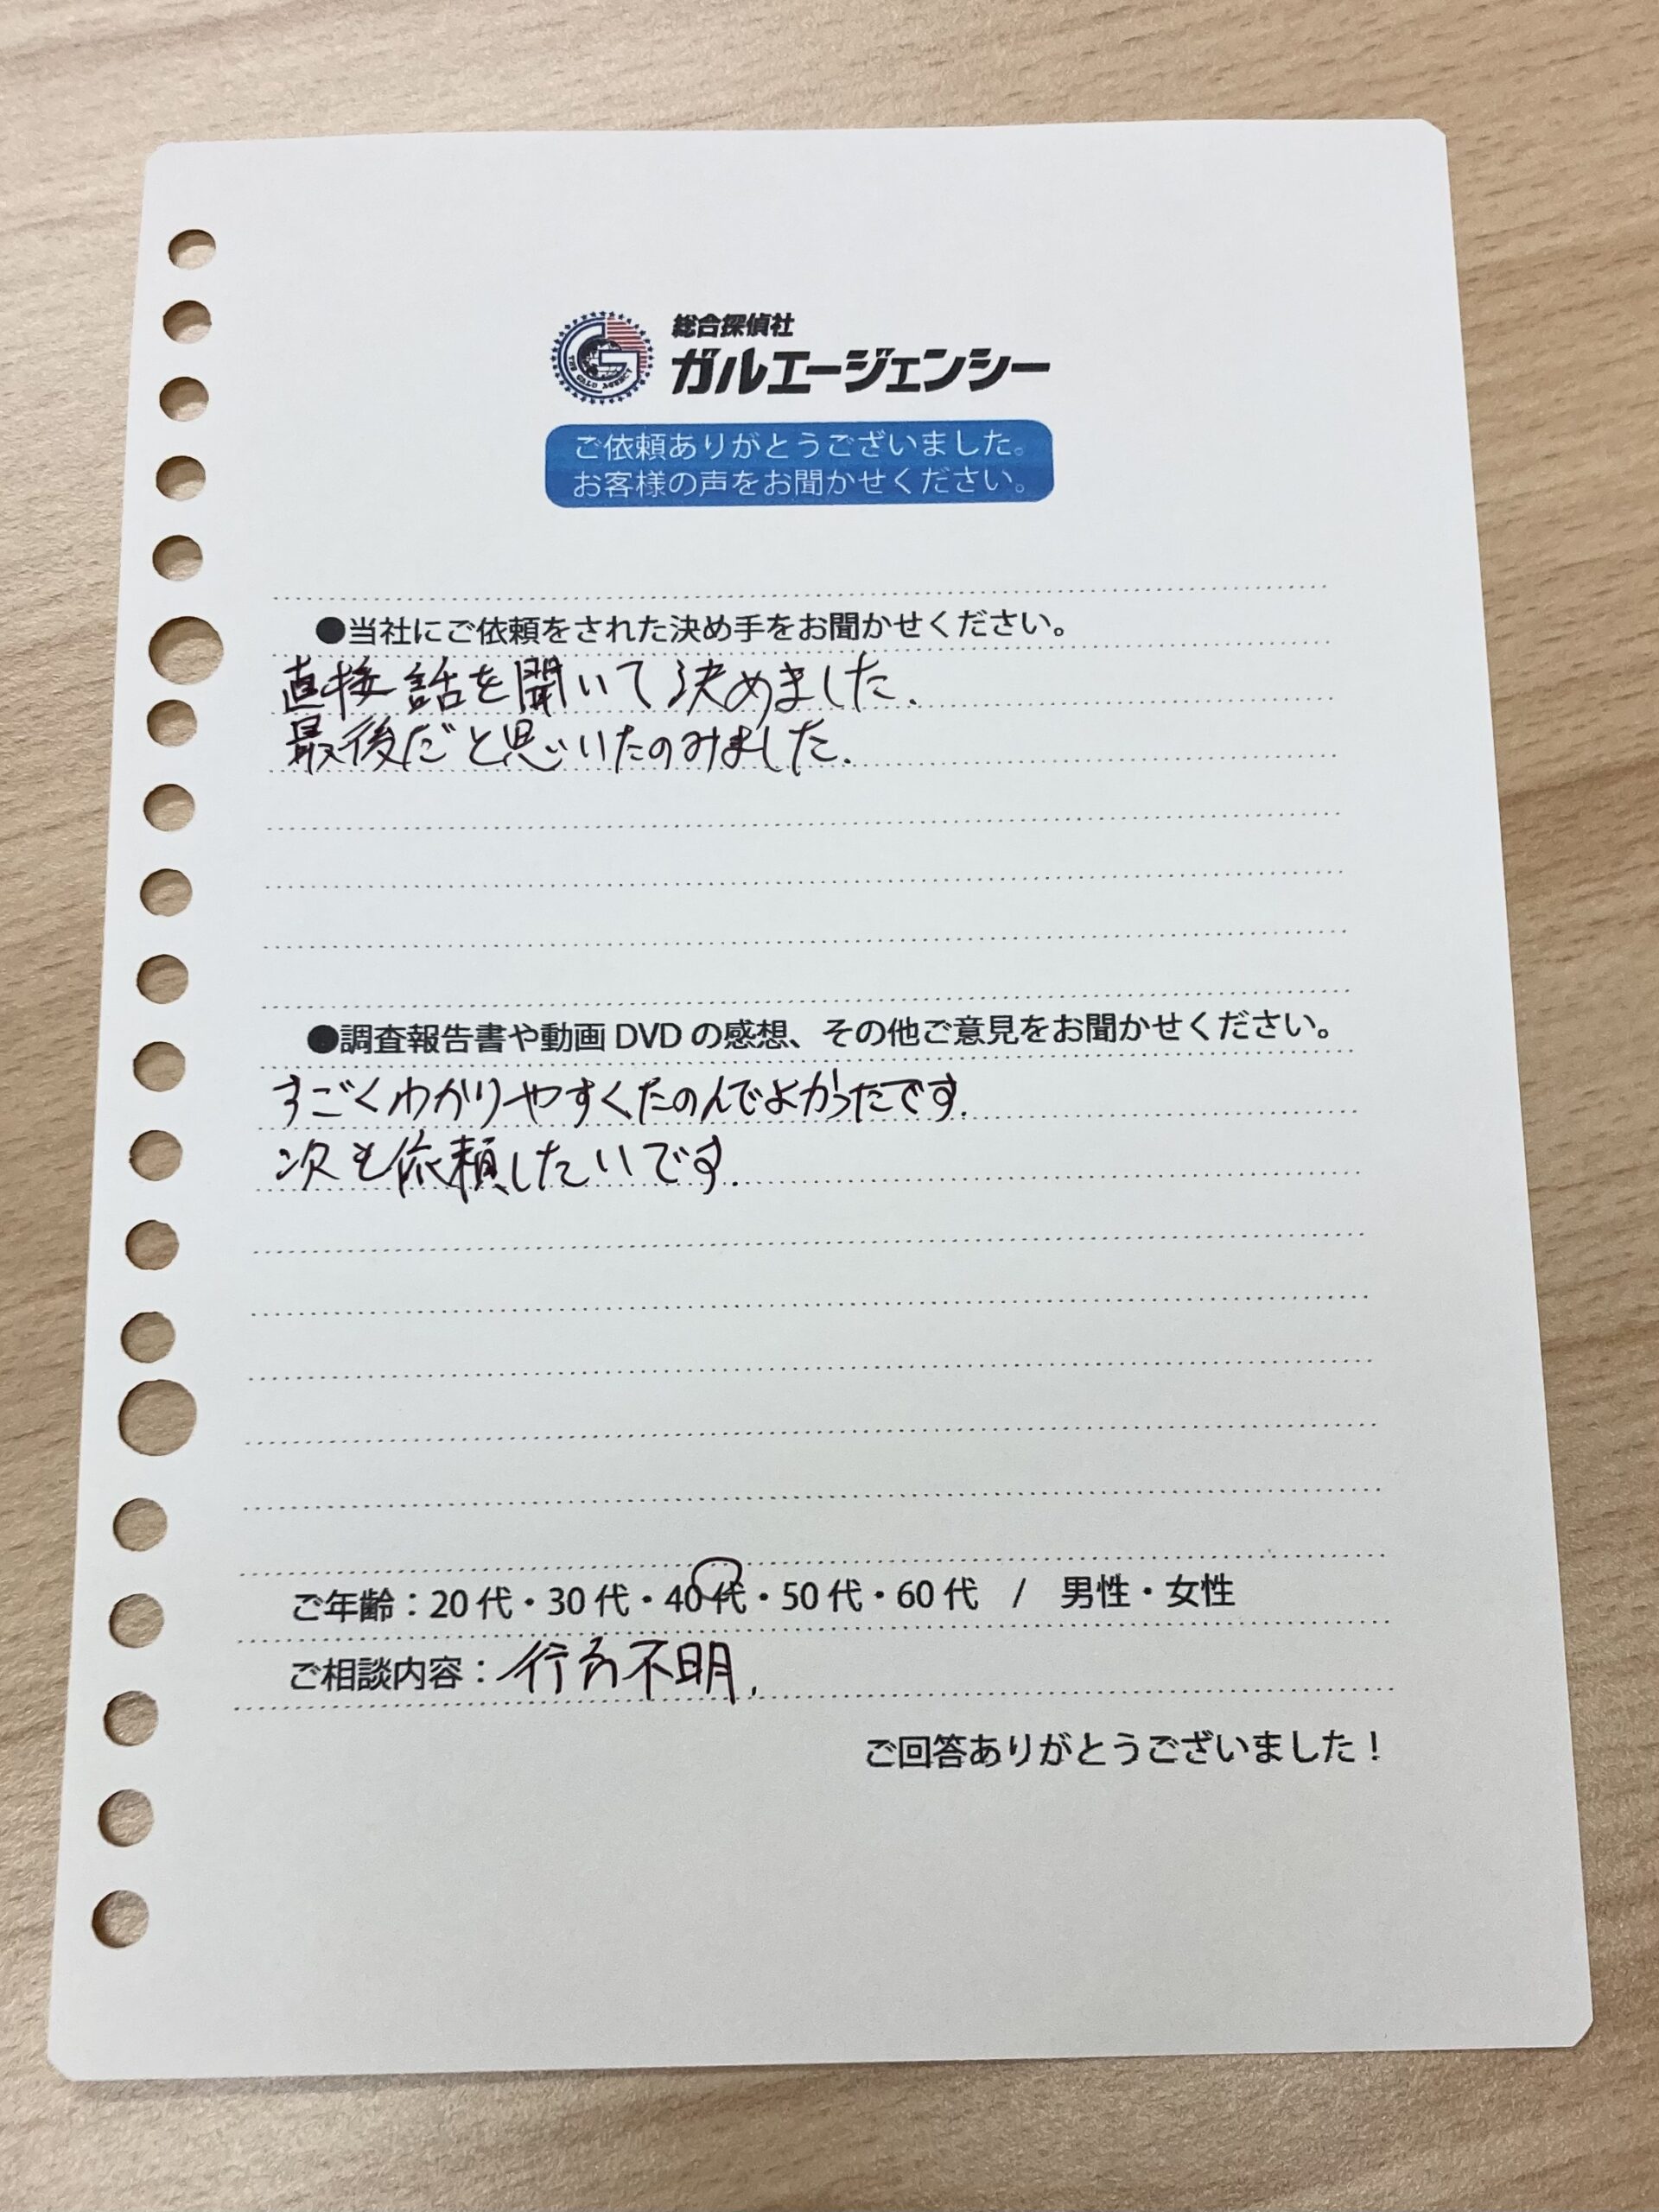 総合探偵社
ガルエージェンシー
ご依頼ありがとうございました。
お客様の声をお聞かせください。
●当社にご依頼をされた決め手をお聞かせください。
直接話を聞いて決めました.
最後だと思いたのみました.
●調査報告書や動画DVDの感想、その他ご意見をお聞かせください。
すごくわかりやすくたのんでよかったです.
次も依頼したいです.
ご年齢：20代・30代・40代・50代・60代 / 男性・女性
ご相談内容：行方不明.
ご回答ありがとうございました！